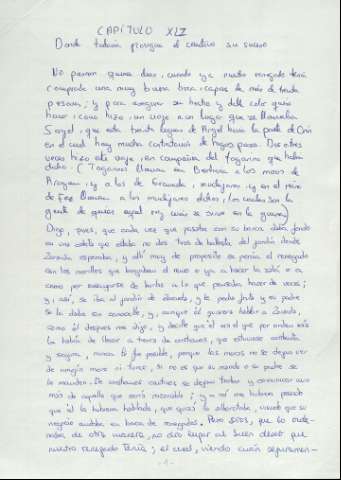 CAPÍTULO XLI
Donde todavía prosigue el cautivo su suceso
No pasaron quince días, cuando ya nuestro renegado tenía
comprada una muy buena barca, capaz de más de treinta
personas; y para asegurar su hecho y dalle color, quiso
hacer, como hizo, un viaje a un lugar que se llamaba
Sargel, que está treinta leguas de Argel hacia la parte de Orán
en el cual hay mucha contratación de higos pasos. Dos o tres
veces hizo este viaje, en compañía del tagarino que había
dicho. (Tagarinos llaman en Berbería a los moros de
Aragón, y a los de Granada, mudéjares, y en el reino
de Fez llaman a los mudéjares elches, los cuales son la
gente de quien aquel rey más se sirve en la guerra)
Digo, pues, que cada vez que pasaba con su barca daba fondo
en una caleta que estaba no dos tiros de ballesta del jardín donde
Zoraida esperaba, y allí muy de propósito se ponía el renegado
con los morillos que bogaban el remo o ya a hacer la zalá o a
como por ensayarse de burlas a lo que pensaba hacer de veras;
y, así, se iba al jardín de Zoraida, y le pedía fruta y su padre
se la daba sin conocelle, y, aunque él quisiera hablar a Zoraida,
como él después me dijo, y decille que él era el que por orden mía
la había de llevar a tierra de cristianos, que estuviese contenta
y segura, nunca le fue posible, porque las moras no se dejan ver
de ningún moro ni turco, si no es que su marido o su padre se
lo manden. De cristianos cautivos se dejan tratar y comunicar aun
más de aquello que sería razonable; y a mí me hubiera pesado
que él la hubiera hablado, que quizá la alborotara, viendo que su
negocio andaba en boca de renegados. Pero Dios, que lo orde-
naba de otra manera, no dio lugar al buen deseo que
nuestro renegado tenía; el cual, viendo cuán seguramen-
- 1 -